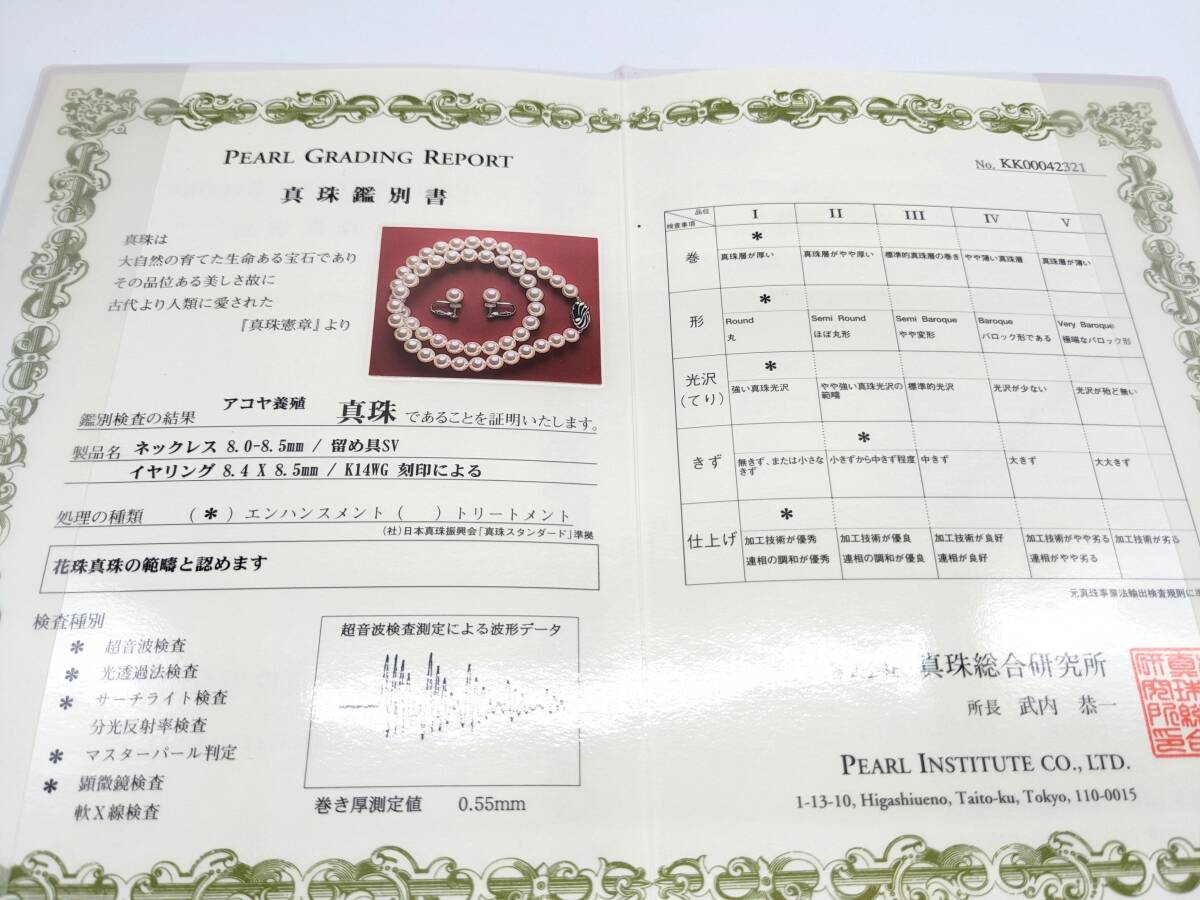 PEARL GRADING REPORT
真珠鑑別書
真珠は
大自然の育てた生命ある宝石であり
その品位ある美しさ故に
古代より人類に愛された
『真珠憲章』より
鑑別検査の結果 アコヤ養殖 真珠 であることを証明いたします。
製品名 ネックレス 8.0-8.5mm / 留め具SV
イヤリング 8.4 X 8.5mm / K14WG 刻印による
処理の種類 (*)エンハンスメント( )トリートメント
(社)日本真珠振興会「真珠スタンダード」準拠
花珠真珠の範疇と認めます
検査種別
* 超音波検査
* 光透過法検査
* サーチライト検査
分光反射率検査
* マスターパール判定
* 顕微鏡検査
軟X線検査
超音波検査測定による波形データ
巻き厚測定値 0.55mm
No. KK00042321
品位
検査事項
I II III IV V
巻
*
真珠層が厚い 真珠層がやや厚い 標準的真珠層の巻き やや薄い真珠層 真珠層が薄い
形
*
Round Semi Round Semi Baroque Baroque Very Baroque
丸 ほぼ丸形 やや変形 バロック形である 極端なバロック形
光沢
(てり)
*
強い真珠光沢 やや強い真珠光沢の範疇 標準的光沢 光沢が少ない 光沢が殆ど無い
きず
*
無きず、または小さなきず 小きずから中きず程度 中きず 大きず 大大きず
仕上げ
*
加工技術が優秀 加工技術が優良 加工技術が良好 加工技術がやや劣る 加工技術が劣る
連相の調和が優秀 連相の調和が優良 連相が良好 連相がやや劣る
元真珠事業法輸出検査規則に準
真珠総合研究所
所長 武内 恭一
PEARL INSTITUTE CO., LTD.
1-13-10, Higashiueno, Taito-ku, Tokyo, 110-0015